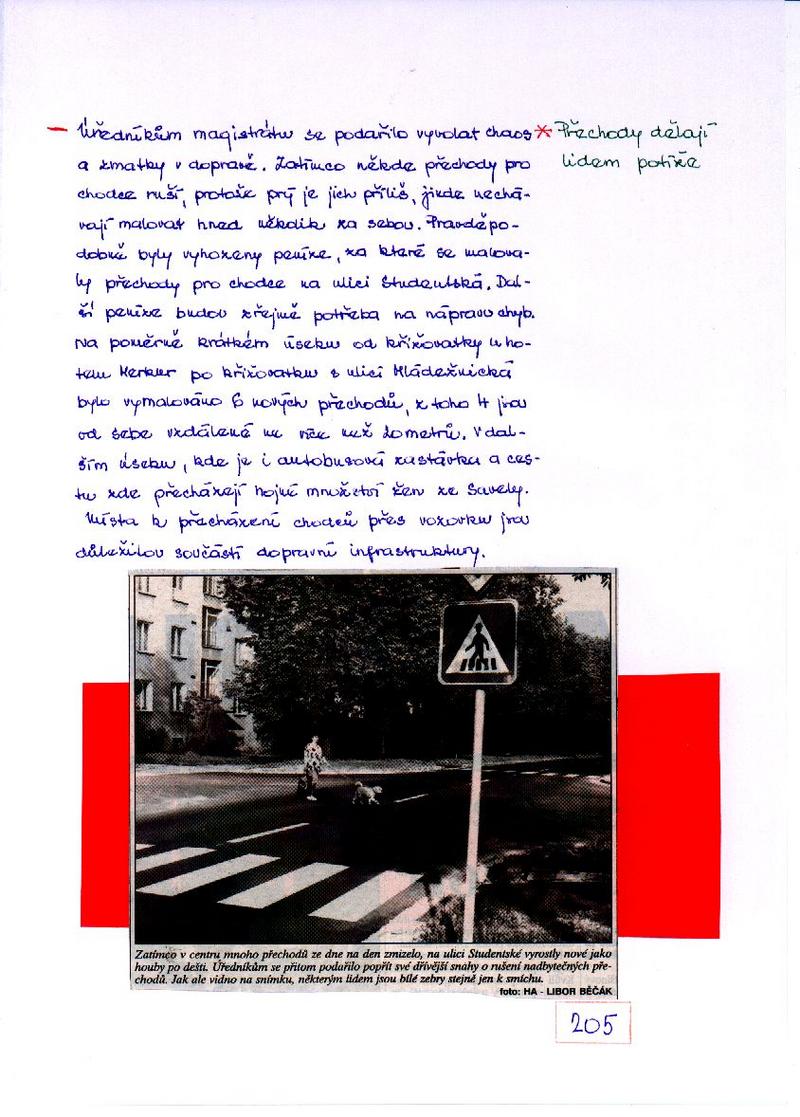 – Úředníkům magistrátu se podařilo vyvolat chaos
a zmatky v dopravě. Zatímco někde přechody pro
chodce ruší, protože prý je jich příliš, jinde nechá-
vají malovat hned několik za sebou. Pravděpo-
dobně byly vyhozeny peníze, za které se malova-
ly přechody pro chodce na ulici Studentská. Dal-
ší peníze budou zřejmě potřeba na nápravu chyb.
Na poměrně krátkém úseku od křižovatky u ho-
telu Merkur po křižovatku s ulicí Mládežnická
bylo vymalováno 6 nových přechodů, z toho 4 jsou
od sebe vzdálené ne více než metrů. V dal-
ším úseku, kde je i autobusová zastávka a ces-
tu zde přecházejí hojné množství žen ze Savely.
Místa k přecházení chodců přes vozovku jsou
důležitou součástí dopravní infrastruktury.
* Přechody dělají
lidem potíže
Zatímco v centru mnoho přechodů ze dne na den zmizelo, na ulici Studentské vyrostly nové jako
houby po dešti. Úředníkům se přitom podařilo popřít své dřívější snahy o rušení nadbytečných pře-
chodů. Jak ale vidno na snímku, některým lidem jsou bílé zebry stejně jen k smíchu.
foto: HA - LIBOR BĚČÁK
205